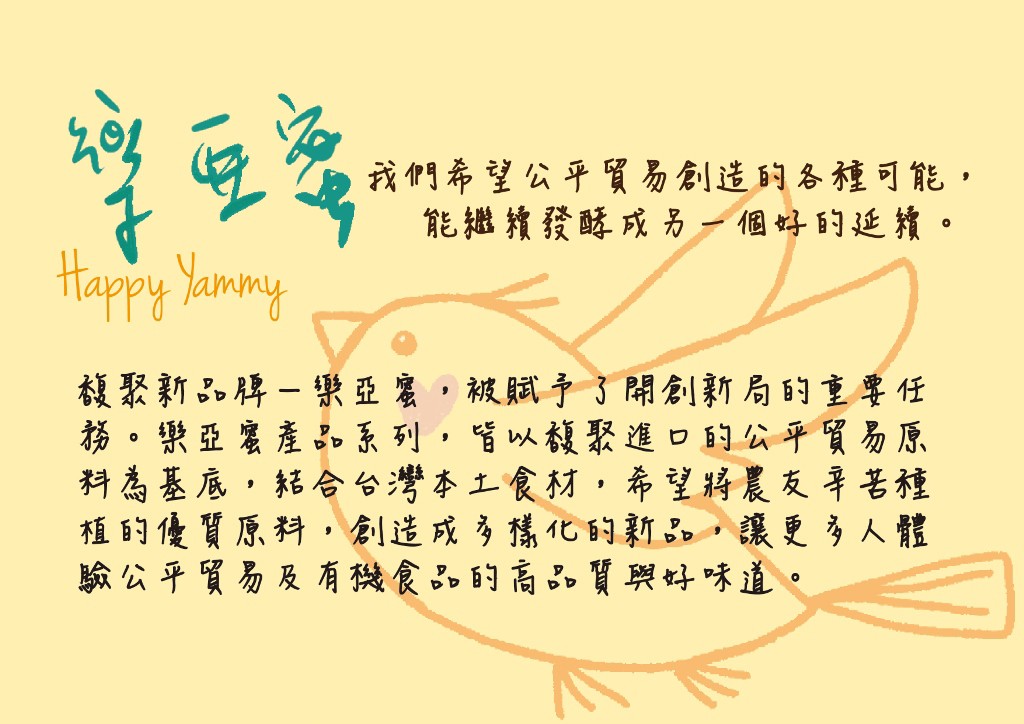 樂亞蜜
Happy Yammy
我們希望公平貿易創造的各種可能，
能繼續發酵成另一個好的延續。
馥聚新品牌－樂亞蜜，被賦予了開創新局的重要任
務。樂亞蜜產品系列，皆以馥聚進口的公平貿易原
料為基底，結合台灣本土食材，希望將農友辛苦種
植的優質原料，創造成多樣化的新品，讓更多人體
驗公平貿易及有機食品的高品質與好味道。